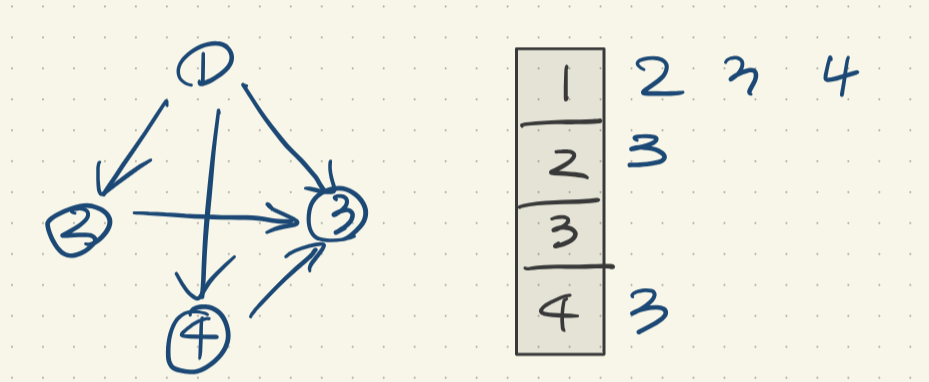 1
2
3
4
1 2 3 4
2 3
3
4 3